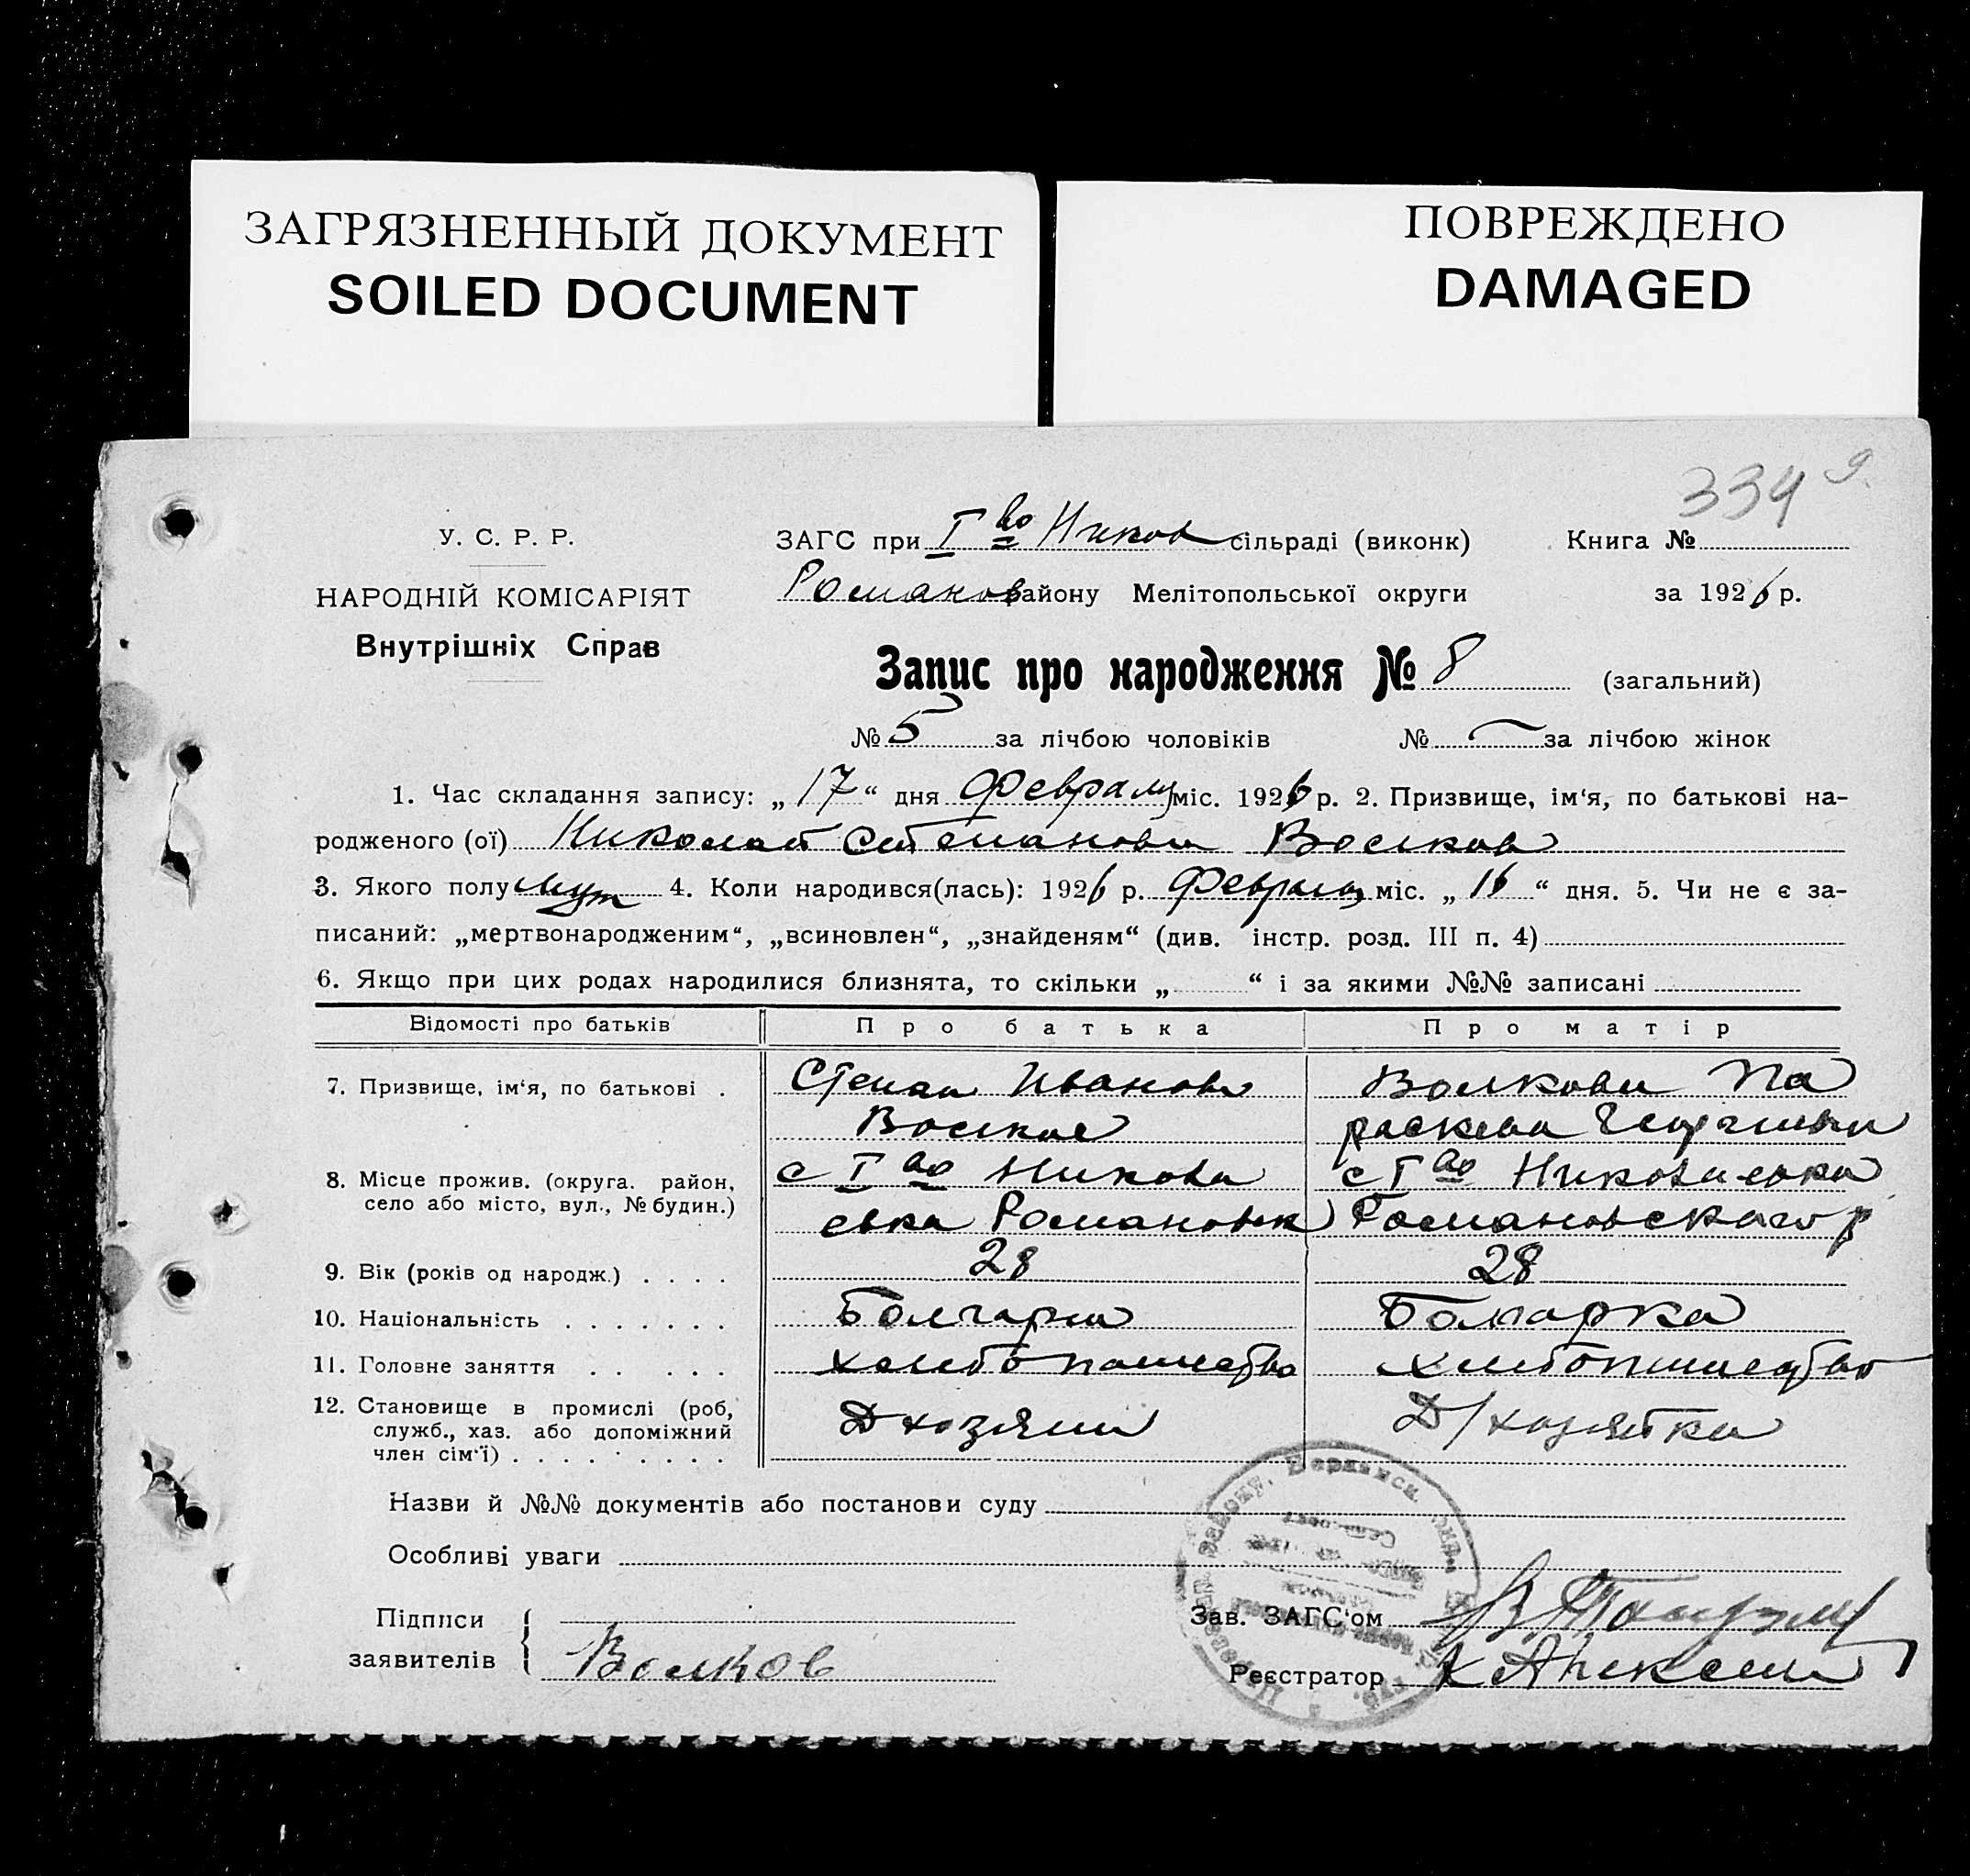 ЗАГРЯЗНЕННЫЙ ДОКУМЕНТ
SOILED DOCUMENT
ПОВРЕЖДЕНО
DAMAGED
334
У. С. Р. Р.
НАРОДНІЙ КОМІСАРІЯТ
Внутрішніх Справ
ЗАГС при І во Ников сільраді (виконк) Книга №
Романов району Мелітопольської округи за 1926 р.
Запис про народження № 8 (загальний)
№ 5 за лічбою чоловіків № — за лічбою жінок
1. Час складання запису: „17“ дня Февраля міс. 1926 р. 2. Призвище, ім'я, по батькові на-
родженого (ої) Николай Степанови Волков
3. Якого полу муж 4. Коли народився(лась): 1926 р. Февраля міс. „16“ дня. 5. Чи не є за-
писаний: „мертвонародженим“, „всиновлен“, „знайденям“ (див. інстр. розд. III п. 4)
6. Якщо при цих родах народилися близнята, то скільки „ “ і за якими №№ записані
Відомості про батьків Про батька Про матір
7. Призвище, ім'я, по батькові . Степан Иванов Волкова Па
Волков раскева Георгиевн
8. Місце прожив. (округа. район, с І во Никола с І во Николаевка
село або місто, вул., № будин.) евка Романовск Романовскаго р
9. Вік (років од народж.) . . . . 28 28
10. Національність . . . . . . . Болгарин Болгарка
11. Головне заняття . . . . . хлебопашество хлебопашество
12. Становище в промислі (роб, Д хозяин Д/хозяйка
служб., хаз. або допоміжний
член сім'ї) . . . . . . . . .
Назви й №№ документів або постанови суду
Особливі уваги
Підписи
заявителів
Волков
Зав. ЗАГС'ом
Реєстратор К Алексеи